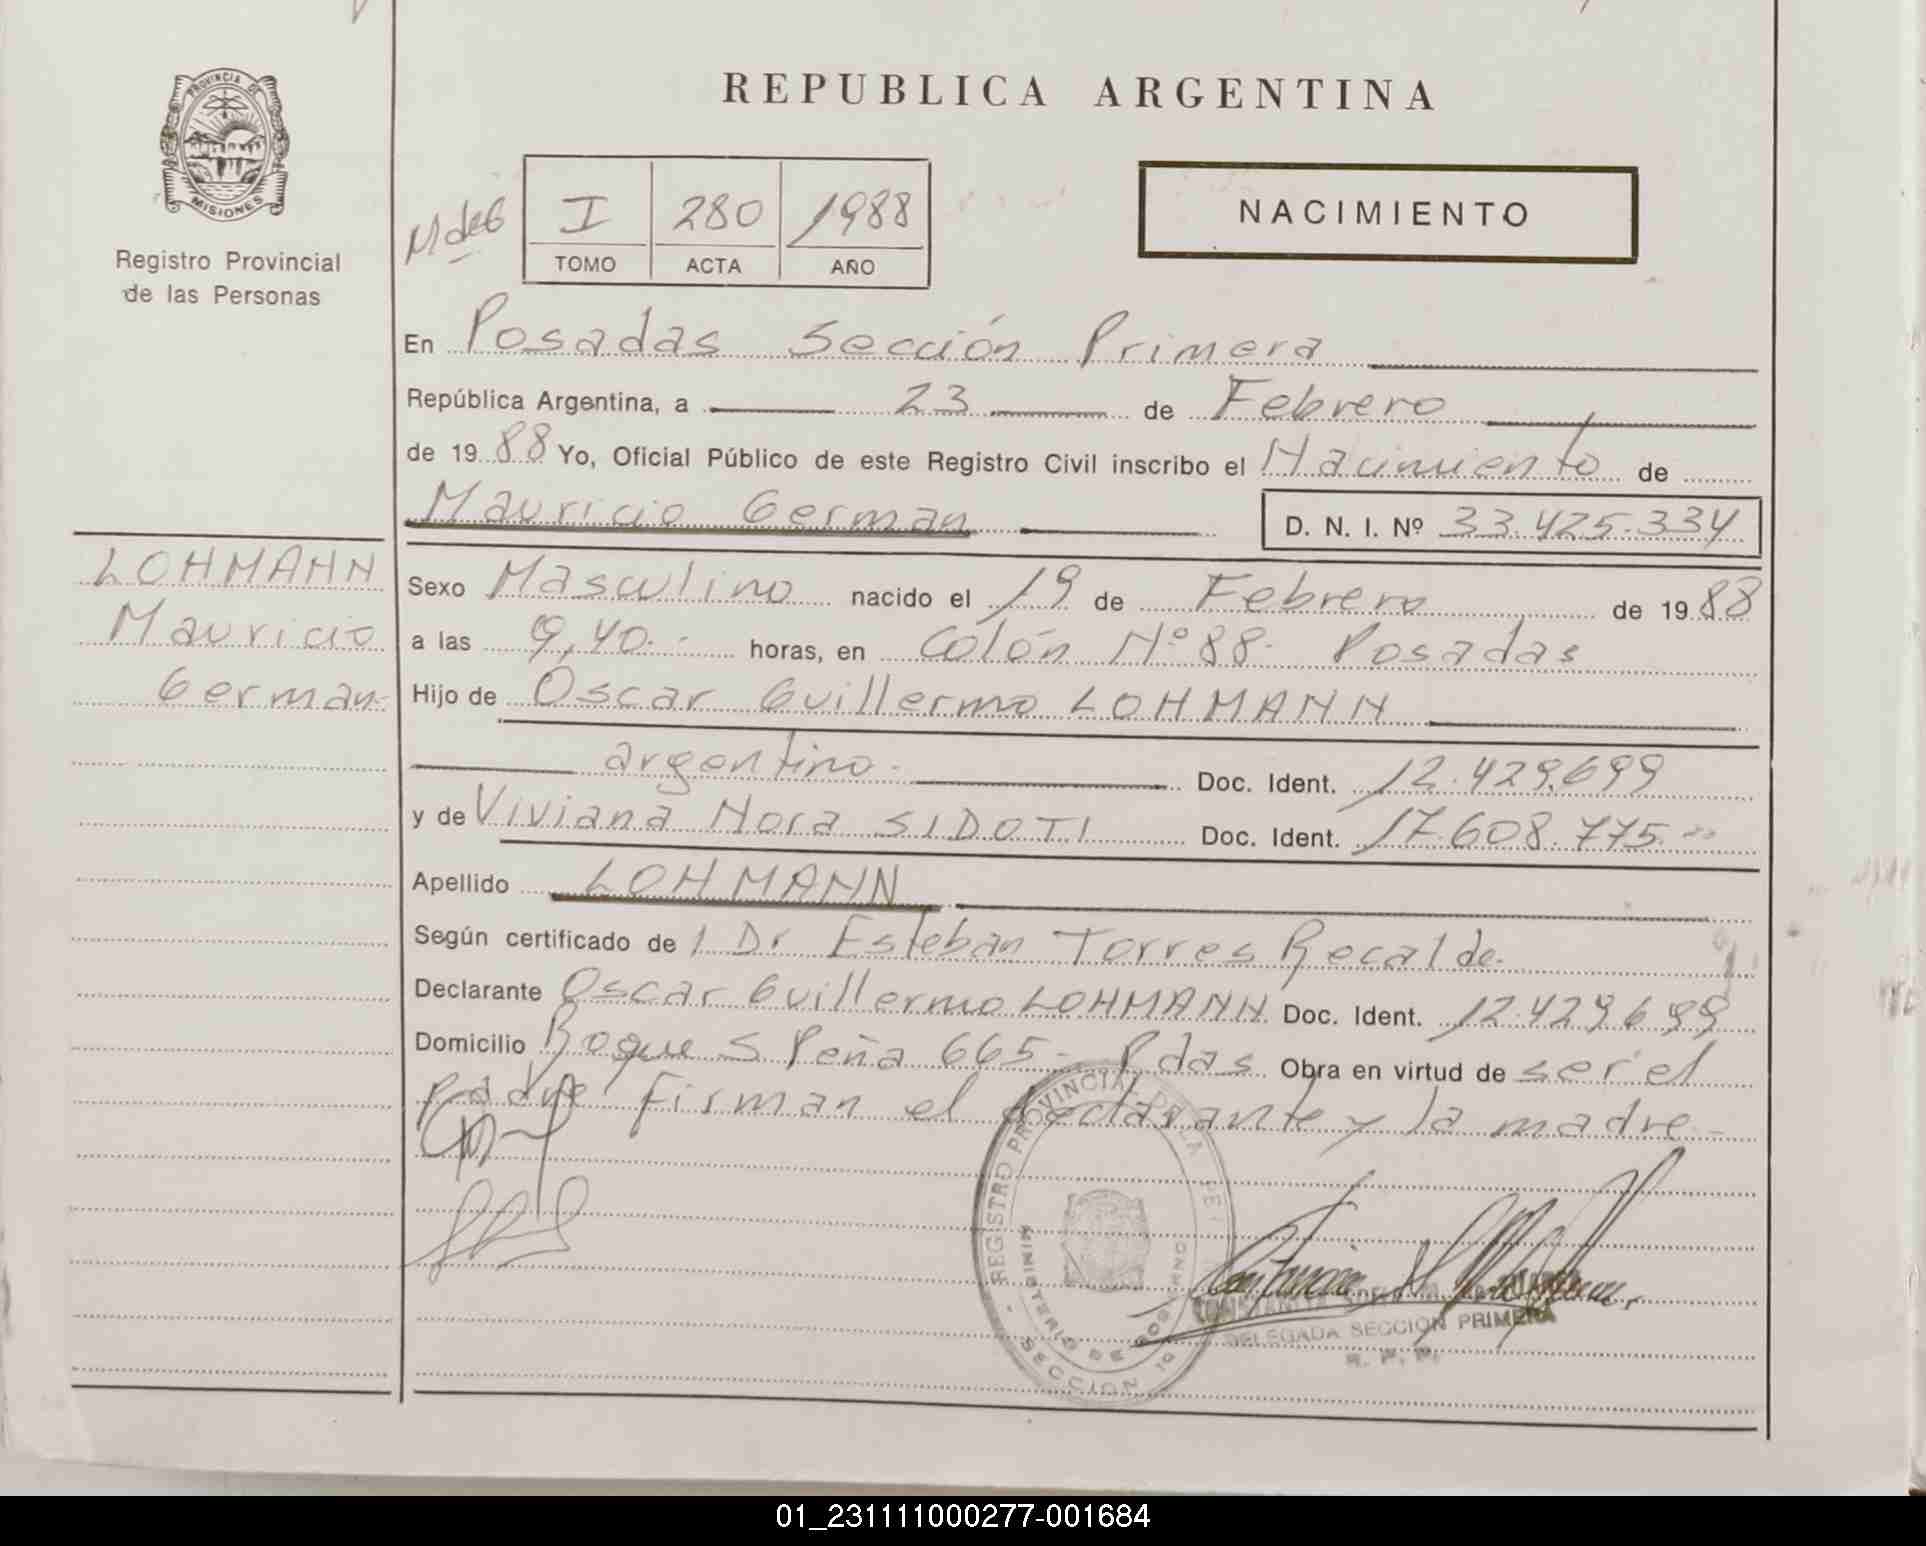 REPUBLICA ARGENTINA
PROVINCIA DE
MISIONES
Registro Provincial
de las Personas
I 280 1988
TOMO ACTA AÑO
NACIMIENTO
En Posadas Sección Primera
República Argentina, a 23 de Febrero
de 1988 Yo, Oficial Público de este Registro Civil inscribo el Nacimiento de
Mauricio German D. N. I. Nº 33.425.334
LOHMANN
Mauricio
German
Sexo Masculino nacido el 19 de Febrero de 1988
a las 9,40 horas, en Colón Nº 88. Posadas
Hijo de Oscar Guillermo LOHMANN
argentino. Doc. Ident. 12.429.699
y de Viviana Nora SIDOTI Doc. Ident. 17.608.775
Apellido LOHMANN
Según certificado de l Dr Esteban Torres Recalde.
Declarante Oscar Guillermo LOHMANN Doc. Ident. 12.429.699
Domicilio Roque S Peña 665 - Pdas Obra en virtud de ser el
padre firman el declarante y la madre -
REGISTRO PROVINCIAL DE LA
MINISTERIO DE GOBIERNO
SECCION
DELEGADA SECCION PRIMERA
R. P. P.
01_231111000277-001684